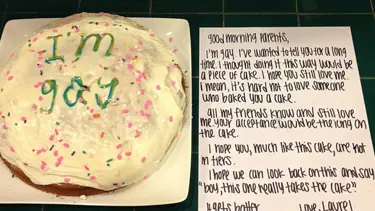 I'm
gay
good morning parents,
I'm gay. I've wanted to tell you for a long
time. I thought doing it this way would be
a piece of cake. I hope you still love me.
I mean, it's hard not to love someone
who baked you a cake.
All my friends know and still love
me. your acceptance would be the icing on
the cake.
I hope you, much like this cake, are not
in tiers.
I hope we can look back on this and say
"boy, this one really takes the cake"
It gets batter.
Love, Laurel